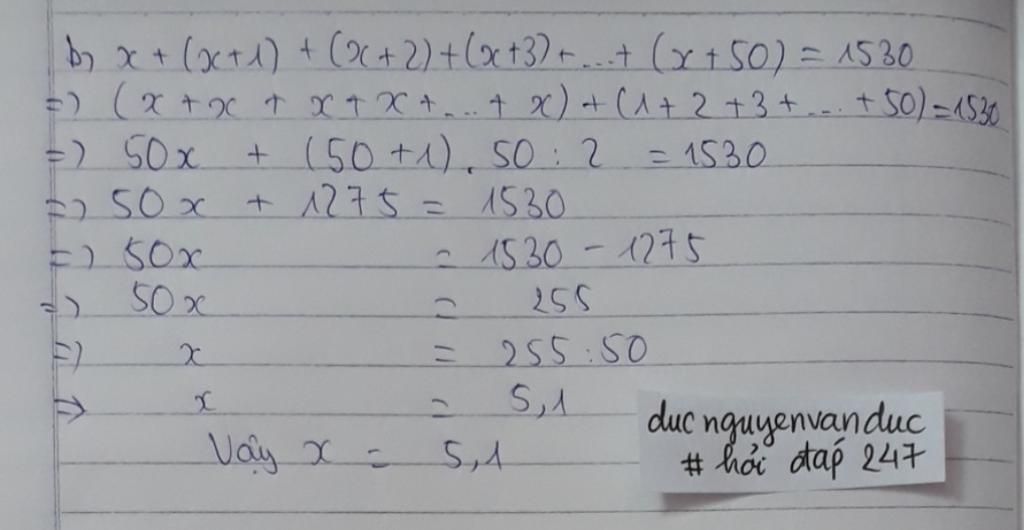 b, x + (x+1) + (x+2)+(x+3)+...+ (x+50) = 1530
=> (x+x + x+x+...+ x)+(1+2+3+...+50)=1530
=> 50x + (50+1).50:2 = 1530
=> 50x + 1275 = 1530
=> 50x = 1530 - 1275
=> 50x = 255
=> x = 255:50
=> x = 5,1
Vậy x = 5,1
ducnguyenvanduc
# hỏi đáp 247